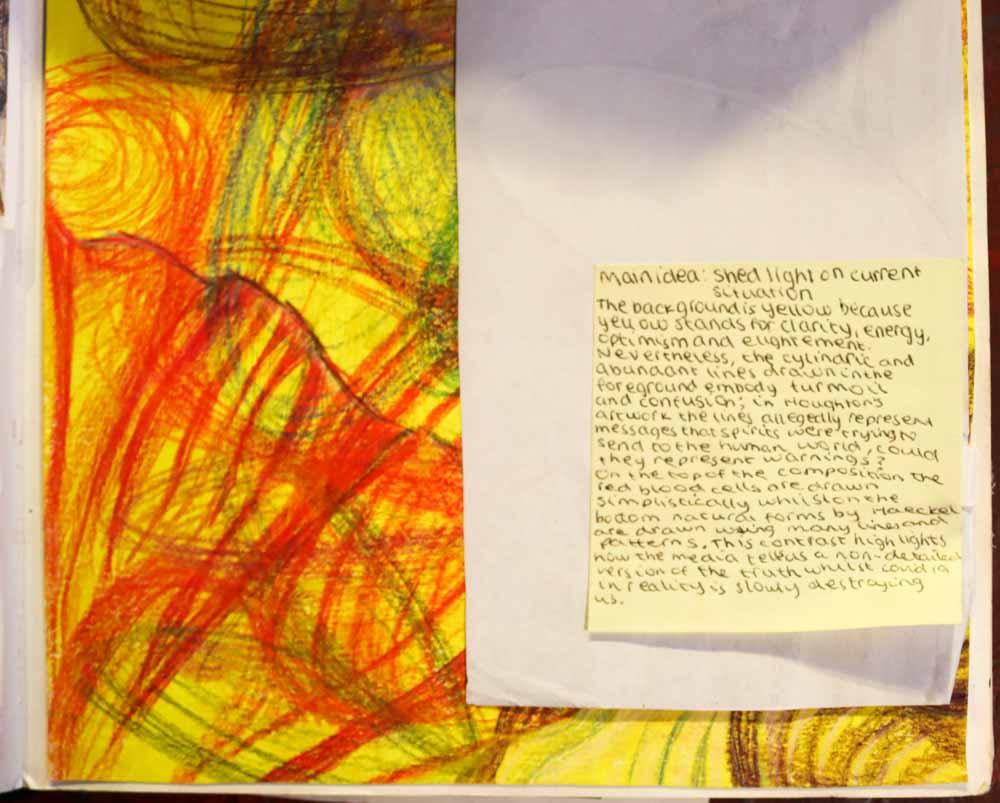 main idea: shed light on current
situation
The background is yellow because
yellow stands for clarity, energy,
optimism and elightement.
Nevertheless, the cylindric and
abundant lines drawn in the
foreground embody turmoil
and confusion; in Houghton's
artwork the lines allegedly represent
messages that spirits were trying to
send to the human world, could
they represent warnings?
On the top of the composition the
red blood cells are drawn
simplistically whilst on the
bottom natural forms by Haeckel
are drawn using many lines and
patterns. This contrast highlights
how the media tells us a non-detailed
version of the truth whilst covid 19
in reality is slowly destroying
us.